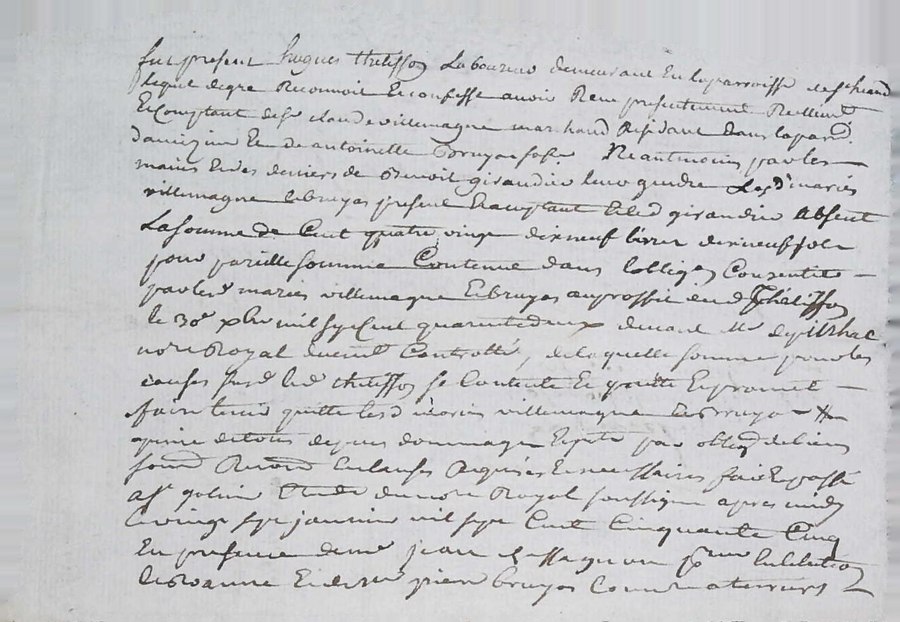 fut present hugues thelisson Laboureur demeurant En la parroisse de st heand
Lequel de gre Reconnoit Et confesse avoir Recu presentement Reellemt
Et Comptant de sr claude villemagne marchand Residant dans la pard
Et de antoinette Bruyas sa fe Neantmoins par les
mains Et des deniers de Benoit girandier leur gendre Lesd maries
villemagne Et bruyas present Et acceptant Et led girandier Absent
La somme de Cent quatre vingt dix neuf livres dix neuf sols
pour pareille somme Contenue dans l'obligaon Consentite
par lesd maries villemagne Et bruyas au proffit dud thelisson
le 30e xbre mil sept Cent quarente deux devant Me
nore Royal Controllé, de laquelle somme pour les
causes susd led thelisson se Contente Et quitte Et promet
faire tenir quitte lesd maries villemagne Et Bruyas
peine de tous depens dommages Et par oblig de biens
soumd Renond Et clauses Requises Et necessaires fait Et passé
a st galmier Etude du nore Royal soussigne apres midy
le vingt sept janvier mil sept Cent Cinquante Cinq
En presence de me jean pror En l'election
de Roanne Et de sr pierre bruyas Commre a terriers